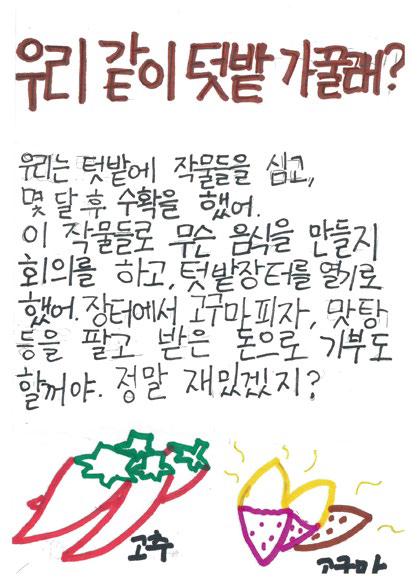 우리 같이 텃밭 가꿀래?
우리는 텃밭에 작물들을 심고,
몇 달 후 수확을 했어.
이 작물들로 무슨 음식을 만들지
회의를 하고, 텃밭장터를 열기로
했어. 장터에서 고구마피자, 맛탕
등을 팔고 받은 돈으로 기부도
할꺼야. 정말 재밌겠지?
고추
고구마